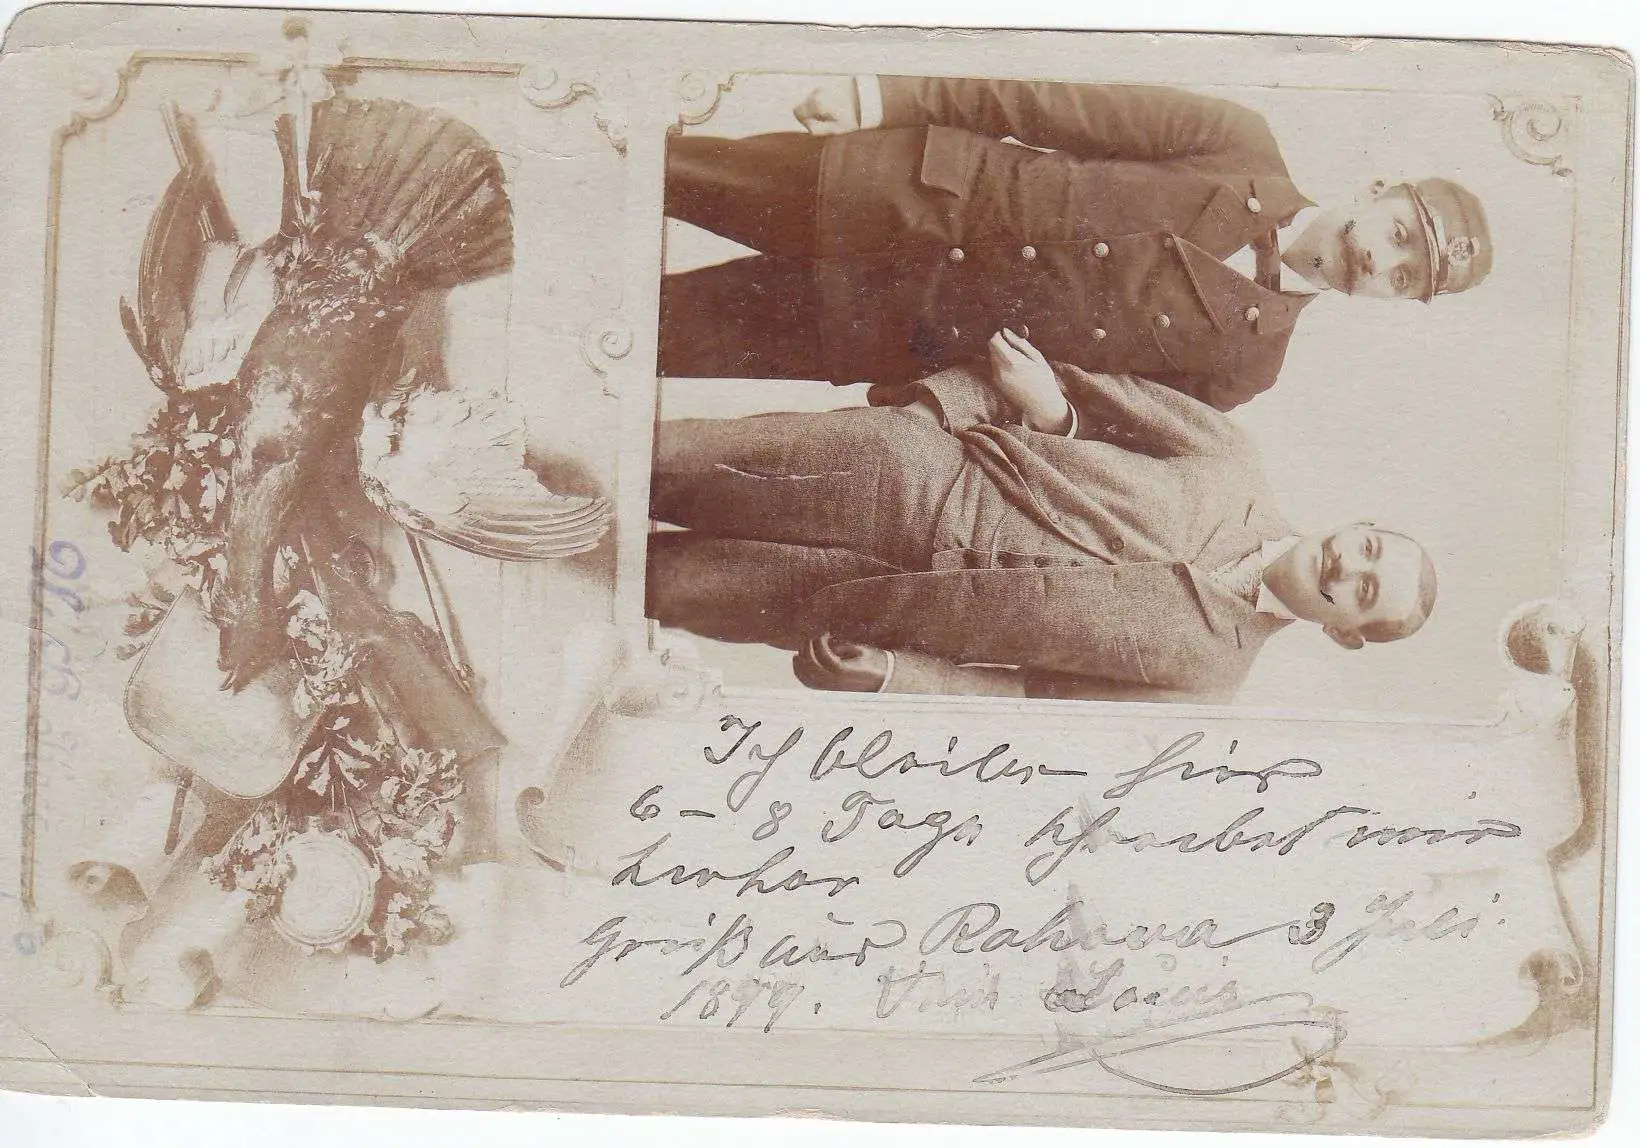 Ich bleibe hier
6 – 8 Tage schreibet mir
hierher
Gruß aus Rahova 3 Juli.
1899. Louis